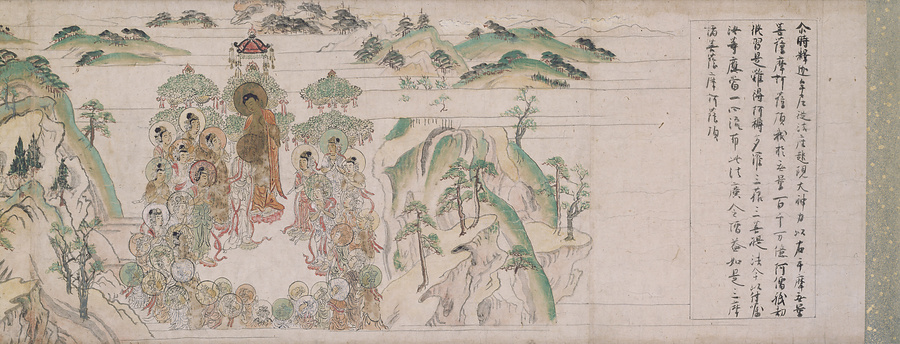 尒時釋迦牟尼従法座起現大神力以右手摩無量
菩薩摩訶薩頂我於無量百千万億阿僧祇劫
修習是難得阿耨多羅三藐三菩提法今以付属
汝等應當一心流布此法廣令増益如是三摩
諸菩薩摩訶薩頂